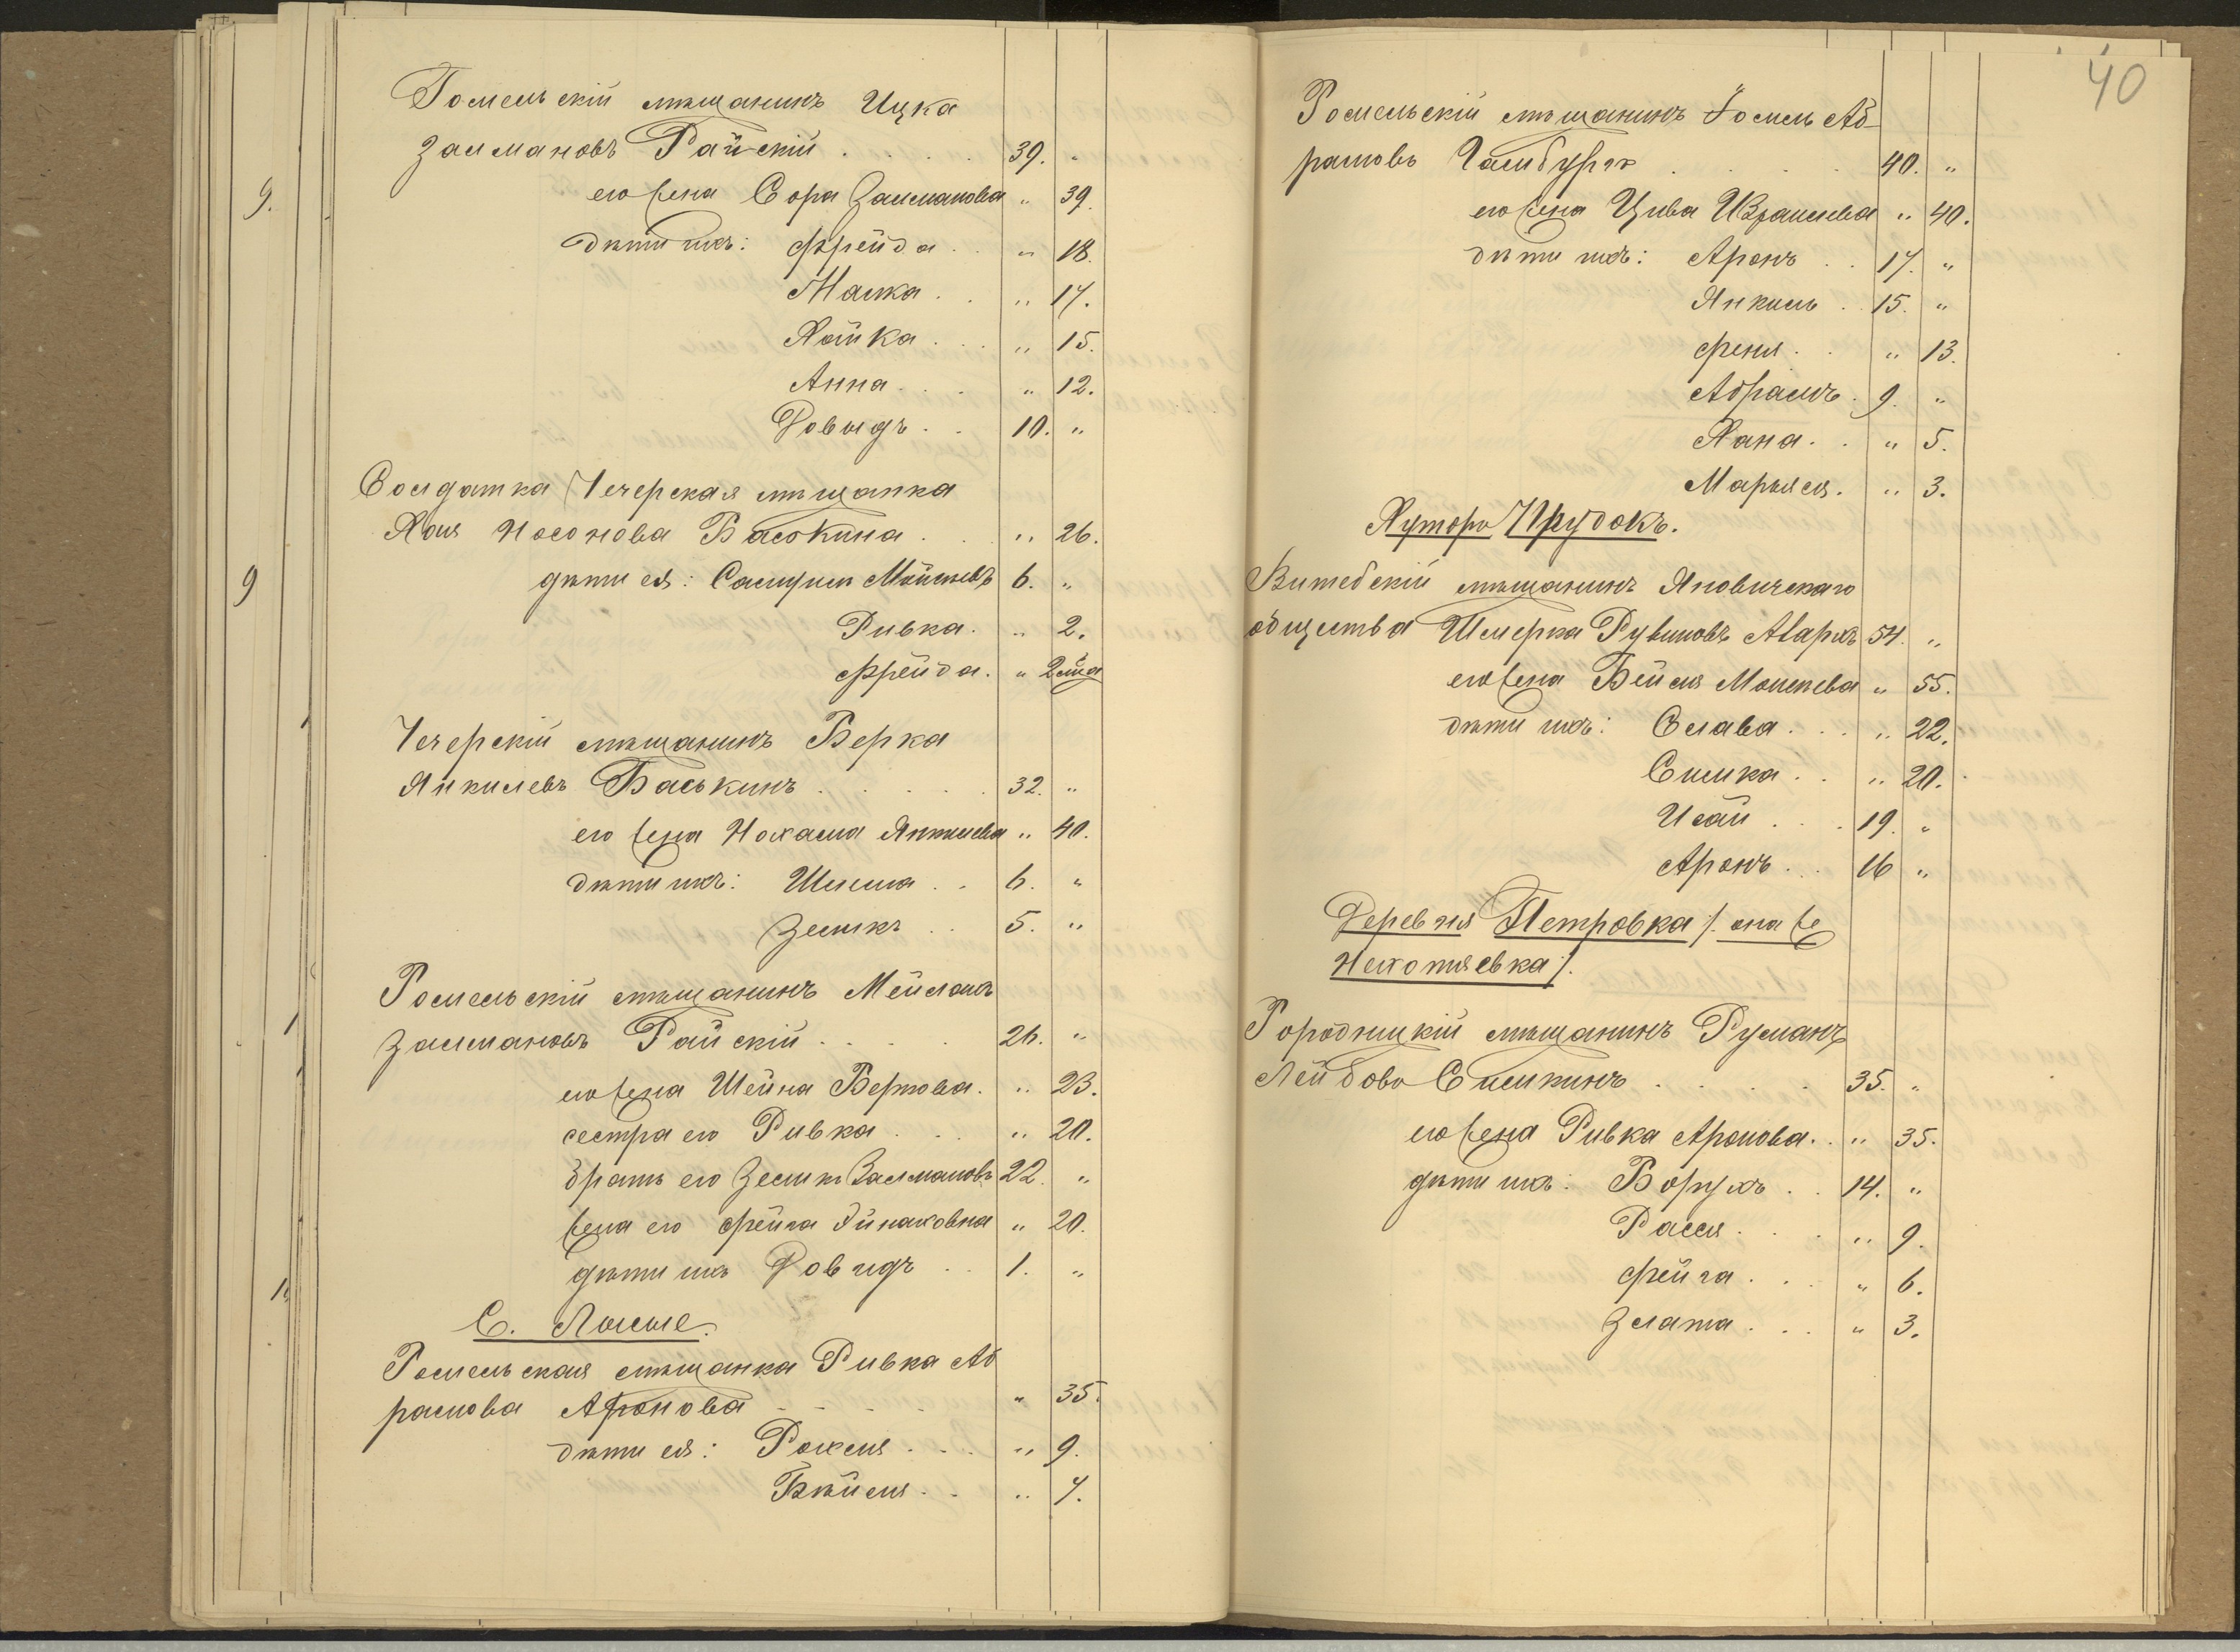 Гомельскій мѣщанинъ Ицка
Залмановъ Райскій . . . . . 39. "
его жена Сора Залманова " 39.
дѣти ихъ: Фрейда . . " 18.
Малка . . " 17.
Хайка . . . " 15.
Анна . . . " 12.
Довыдъ . . 10. "
9.
Солдатка Чечерская мѣщанка
Хая Носонова Баськина . . . " 26.
9 дѣти ея: Самуилъ Мойшевъ 6. "
Ривка . " 2.
Фрейда . "
Чечерскій мѣщанинъ Берка
Янкилевъ Баськинъ . . . . . 32. "
его жена Нохама Янкилева " 40.
дѣти ихъ: Шлема . . 6. "
Зеликъ . . 5. "
Гомельскій мѣщанинъ
Залмановъ Райскій . . . . 26. "
его жена Шейна Беркова . " 23.
сестра его Ривка . . . " 20.
братъ его Зеликъ Залмановъ 22. "
жена его Фейга " 20.
дѣти ихъ Довидъ . . 1. "
С.
Гомельская мѣщанка Ривка Аб
рамова Аронова - - - - . " 35.
дѣти ея: . . . " 9.
Бейля . . " 7.
40
Гомельскій мѣщанинъ Іосель Аб-
рамовъ Гамбургъ . . . . 40. "
его жена Цива Израилева " 40.
дѣти ихъ: Аронъ . . 17. "
Янкиль . 15. "
Феня . . " 13.
Абрамъ . 9. "
Хана . . " 5.
Марьяся . " 3.
Хуторъ Прудокъ.
Витебскій мѣщанинъ Яновичскаго
общества Шмерка Рувиновъ 54. "
его жена Бейля Монешева " 55.
дѣти ихъ: Слава . . . " 22.
Симка . . " 20.
Исай . . . 19. "
Аронъ . . . 16 "
Деревня Петровка /: она же
:/.
Городницкій мѣщанинъ
Лейбовъ Симкинъ . . . . . 35. "
его жена Ривка Аронова . . " 35.
дѣти ихъ: Борухъ . . 14. "
Рася . . . " 9.
Фейга . . . " 6.
Злата . . . " 3.